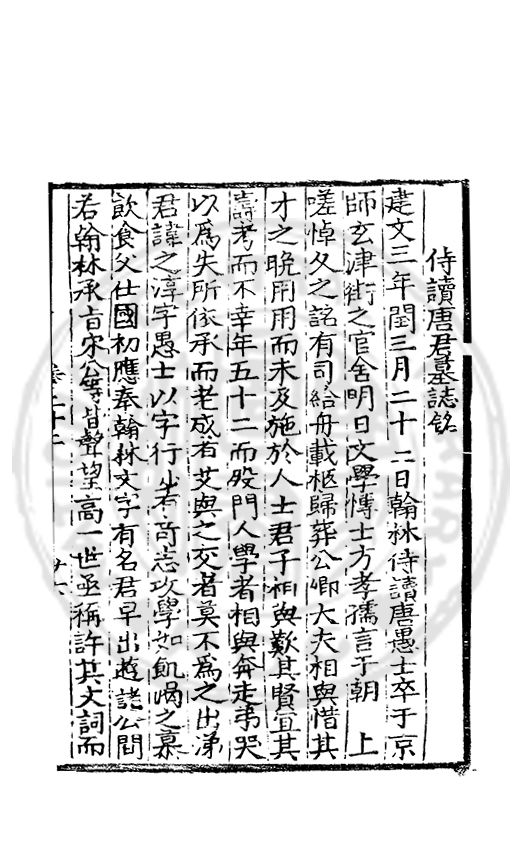 侍讀唐君墓誌銘
建文三年閏三月二十二日翰林侍讀唐愚士卒于京
師玄津街之官舍明日文學博士方孝孺言于朝　上
嗟悼久之詔有司給舟載柩歸葬公卿大夫相與惜其
才之晚用用而未及施於人士君子相與歎其賢宜其
壽考而不幸年五十二而歿門人學者相與奔走弔哭
以為失所依承而老成耆艾與之交者莫不為之出涕
君諱之淳字愚士以字行生有奇志攻學如飢渴之慕
飲食父仕國初應奉翰林文字有名君早出遊諸公間
若翰林承旨宋公等皆聲望高一世亟稱許其文詞而
卷二十二
廿六